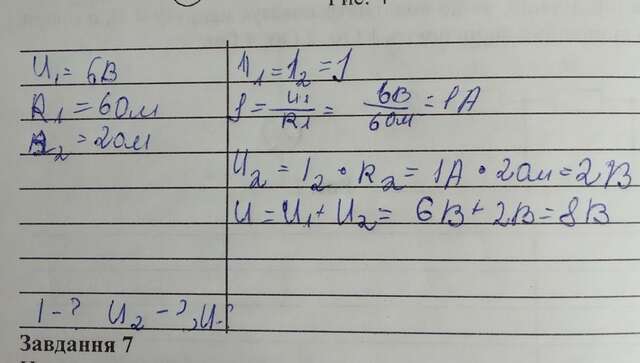 Рис. 4
U₁ = 6В
R₁ = 6Ом
R₂ = 2Ом
I - ? U₂ - ?, U - ?
I₁ = I₂ = I
I = U₁/R₁ = 6В/6Ом = 1А
U₂ = I₂ • R₂ = 1А • 2Ом = 2В
U = U₁ + U₂ = 6В + 2В = 8В
Завдання 7